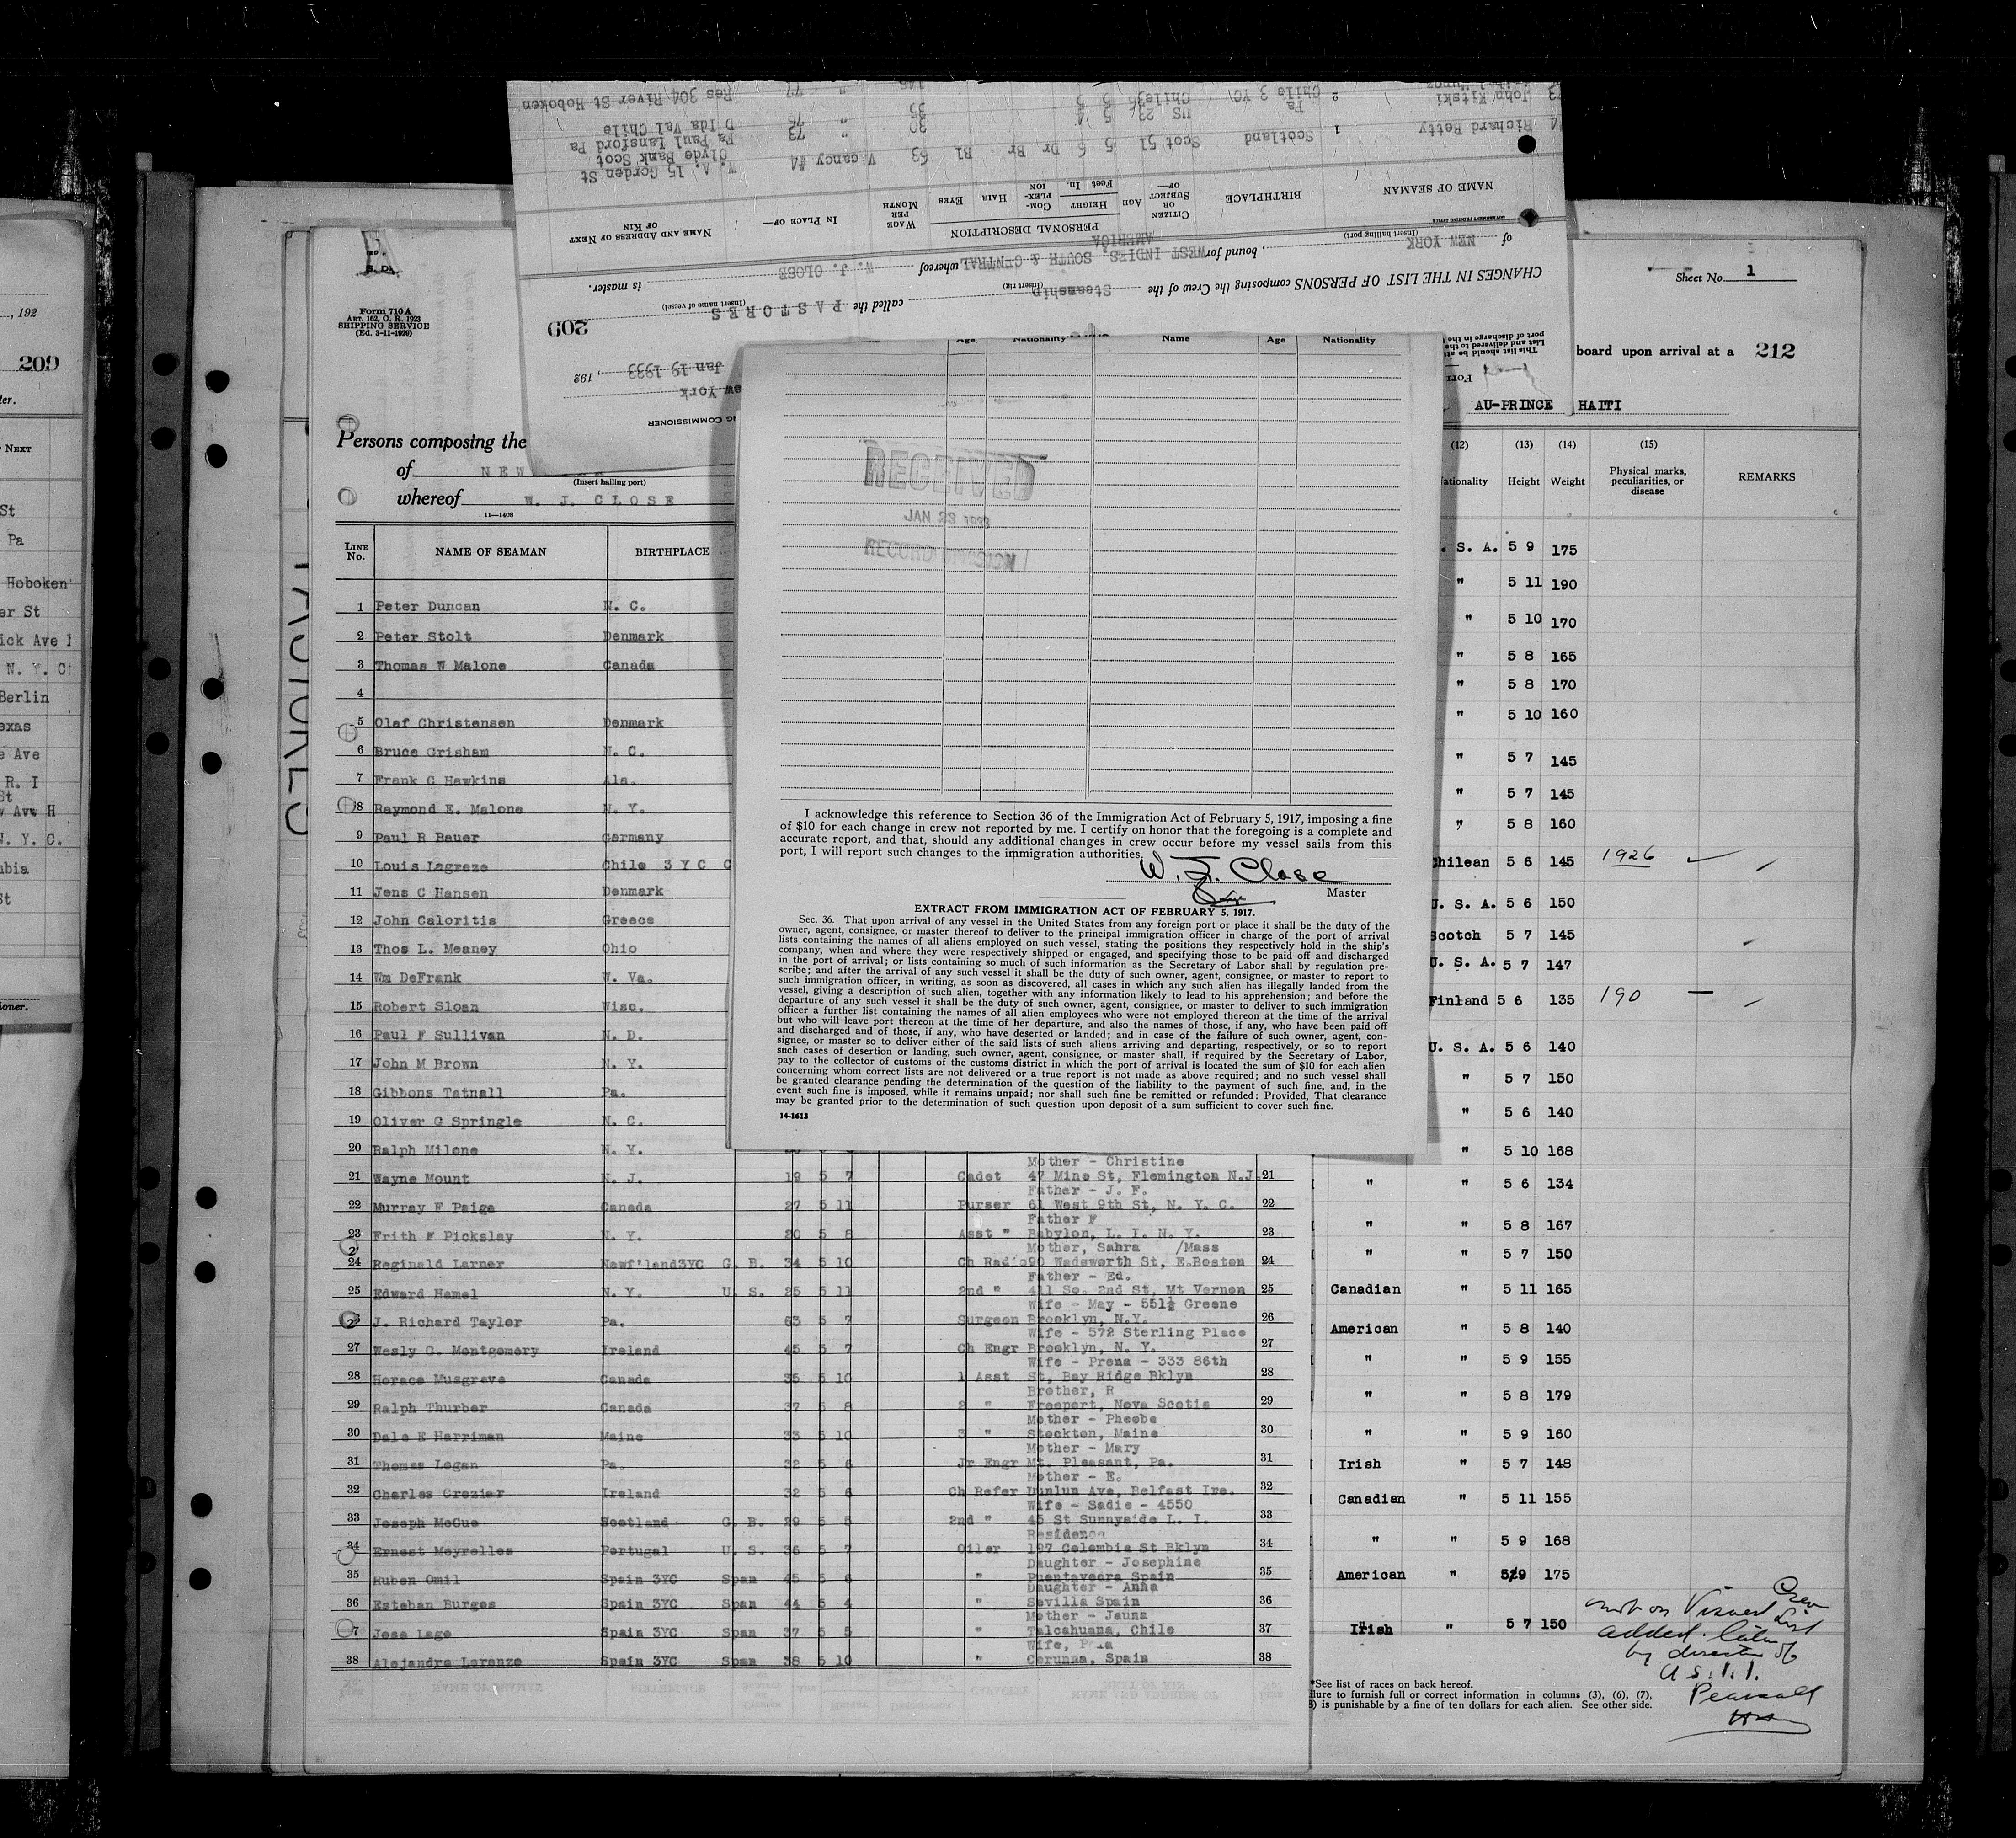 , 192
209
er.
NEXT
St
Pa
Hoboken
er St
ick Ave
N. Y. C
Berlin
exas
e Ave
R. I
St
Ave H
N. Y. C.
mbia
St
ioner.
14 Richard Betty 1 Scotland Scot 51 5 6 Dr Br Bl 63 Vacancy #4 W. A. 15 Gorden St
Clyde Bank Scot
John Kitski Pa US 23 5 4 30 " 73 Pa Paul Lansford Pa
2 Chile 3 YC Chile 35 5 5 35 " 76 D Ida Val Chile
145 " 77 Res 304 River St Hoboken
NAME OF SEAMAN
BIRTHPLACE
CITIZEN OR SUBJECT OF—
AGE
PERSONAL DESCRIPTION
HEIGHT
Feet In.
COM-PLEX-ION
HAIR
EYES
WAGE PER MONTH
IN PLACE OF—
NAME AND ADDRESS OF NEXT OF KIN
GOVERNMENT PRINTING OFFICE
of NEW YORK (Insert hailing port), bound for WEST INDIES, SOUTH & CENTRAL AMERICA whereof W. J. CLOSE is master.
CHANGES IN THE LIST OF PERSONS composing the Crew of the Steamship (Insert rig) called the PASTORES (Insert name of vessel)
209
Jan 19 1933, 192
ew York
NG COMMISSIONER
This list should be
List and delivered to the
port of discharge in the
Form 710A
ART. 162, C. R. 1923
SHIPPING SERVICE
(Ed. 3-11-1929)
Persons composing the
of NEW
(Insert hailing port)
whereof W. J. CLOSE
11—1408
LINE No. NAME OF SEAMAN BIRTHPLACE
1 Peter Duncan N. C.
2 Peter Stolt Denmark
3 Thomas W Malone Canada
4
5 Olaf Christensen Denmark
6 Bruce Grisham N. C.
7 Frank C Hawkins Ala.
8 Raymond E. Malone N. Y.
9 Paul R Bauer Germany
10 Louis Lagreze Chile 3 Y C C
11 Jens C Hansen Denmark
12 John Caloritis Greece
13 Thos L. Meaney Ohio
14 Wm DeFrank W. Va.
15 Robert Sloan Wisc.
16 Paul F Sullivan N. D.
17 John M Brown N. Y.
18 Gibbons Tatnall Pa.
19 Oliver G Springle N. C.
20 Ralph Milone N. Y.
Mother - Christine
21 Wayne Mount N. J. 19 5 7 Cadet 47 Mine St, Flemington N.J. 21
Father - J. F.
22 Murray F Paige Canada 27 5 11 Purser 61 West 9th St, N. Y. C. 22
Father F
23 Frith F Picksley N. Y. 20 5 8 Asst " Babylon, L. I. N. Y. 23
Mother, Sahra /Mass
24 Reginald Larner Newf'land3YC G. B. 34 5 10 Ch Radio 90 Wadsworth St, E.Boston 24
Father - Ed.
25 Edward Hamel N. Y. U. S. 25 5 11 2nd " 411 So. 2nd St, Mt Vernon 25
Wife - May - 551½ Greene
J. Richard Taylor Pa. 63 5 7 Surgeon Brooklyn, N.Y. 26
Wife - 572 Sterling Place
27 Wesly G. Montgomery Ireland 45 5 7 Ch Engr Brooklyn, N. Y. 27
Wife - Prena - 333 86th
28 Horace Musgrave Canada 35 5 10 1 Asst St, Bay Ridge Bklyn 28
Brother, R
29 Ralph Thurber Canada 37 5 8 2 " Freeport, Nova Scotia 29
Mother - Pheobe
30 Dale E Harriman Maine 33 5 10 3 " Stockton, Maine 30
Mother - Mary
31 Thomas Logan Pa. 32 5 6 Jr Engr Mt. Pleasant, Pa. 31
Mother - E.
32 Charles Crozier Ireland 32 5 6 Ch Refer Dunlun Ave, Belfast Ire. 32
Wife - Sadie - 4550
33 Joseph McCue Scotland G. B. 29 5 5 2nd " 45 St Sunnyside L. I. 33
Residence
34 Ernest Meyrelles Portugal U. S. 36 5 7 Oiler 197 Columbia St Bklyn 34
Daughter - Josephine
35 Ruben Omil Spain 3YC Span 45 5 6 " Puentaveora Spain 35
Daughter - Anna
36 Esteban Burges Spain 3YC Span 44 5 4 " Sevilla Spain 36
Mother - Jauna
7 Jose Lage Spain 3YC Span 37 5 5 " Talcahuana, Chile 37
Wife,
38 Alejandro Lorenzo Spain 3YC Span 38 5 10 " Corunna, Spain 38
Age Nationality Name Age Nationality
RECEIVED
JAN 23 1933
RECORD DIVISION
I acknowledge this reference to Section 36 of the Immigration Act of February 5, 1917, imposing a fine
of $10 for each change in crew not reported by me. I certify on honor that the foregoing is a complete and
accurate report, and that, should any additional changes in crew occur before my vessel sails from this
port, I will report such changes to the immigration authorities.
W. J. Close
Master
EXTRACT FROM IMMIGRATION ACT OF FEBRUARY 5, 1917.
Sec. 36. That upon arrival of any vessel in the United States from any foreign port or place it shall be the duty of the
owner, agent, consignee, or master thereof to deliver to the principal immigration officer in charge of the port of arrival
lists containing the names of all aliens employed on such vessel, stating the positions they respectively hold in the ship's
company, when and where they were respectively shipped or engaged, and specifying those to be paid off and discharged
in the port of arrival; or lists containing so much of such information as the Secretary of Labor shall by regulation pre-
scribe; and after the arrival of any such vessel it shall be the duty of such owner, agent, consignee, or master to report to
such immigration officer, in writing, as soon as discovered, all cases in which any such alien has illegally landed from the
vessel, giving a description of such alien, together with any information likely to lead to his apprehension; and before the
departure of any such vessel it shall be the duty of such owner, agent, consignee, or master to deliver to such immigration
officer a further list containing the names of all alien employees who were not employed thereon at the time of the arrival
but who will leave port thereon at the time of her departure, and also the names of those, if any, who have been paid off
and discharged and of those, if any, who have deserted or landed; and in case of the failure of such owner, agent, con-
signee, or master so to deliver either of the said lists of such aliens arriving and departing, respectively, or so to report
such cases of desertion or landing, such owner, agent, consignee, or master shall, if required by the Secretary of Labor,
pay to the collector of customs of the customs district in which the port of arrival is located the sum of $10 for each alien
concerning whom correct lists are not delivered or a true report is not made as above required; and no such vessel shall
be granted clearance pending the determination of the question of the liability to the payment of such fine, and, in the
event such fine is imposed, while it remains unpaid; nor shall such fine be remitted or refunded: Provided, That clearance
may be granted prior to the determination of such question upon deposit of a sum sufficient to cover such fine.
14-1613
Sheet No. 1
board upon arrival at a 212
AU-PRINCE HAITI
(12) (13) (14) (15)
ationality Height Weight Physical marks, peculiarities, or disease REMARKS
. S. A. 5 9 175
" 5 11 190
" 5 10 170
" 5 8 165
" 5 8 170
" 5 10 160
" 5 7 145
" 5 7 145
" 5 8 160
Chilean 5 6 145 1926
U. S. A. 5 6 150
Scotch 5 7 145
U. S. A. 5 7 147
Finland 5 6 135 190
U. S. A. 5 6 140
" 5 7 150
" 5 6 140
" 5 10 168
" " 5 6 134
" " 5 8 167
" " 5 7 150
Canadian " 5 11 165
American " 5 8 140
" " 5 9 155
" " 5 8 179
" " 5 9 160
Irish " 5 7 148
Canadian " 5 11 155
" " 5 9 168
American " 5 9 175
Irish " 5 7 150
Crew
not on Visaed List
added later
by direction of
A. S. I. I.
Pearsall
*See list of races on back hereof.
lure to furnish full or correct information in columns (3), (6), (7),
) is punishable by a fine of ten dollars for each alien. See other side.